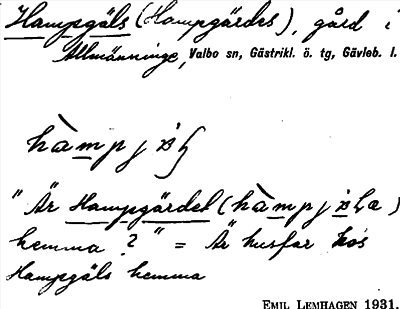 Hampgäls (Hampgärdes), gård i
Allmänninge, Valbo sn, Gästrikl. ö. tg, Gävleb. l.
hàmpjäɭ
"Är Hampgärdel (hàmpjäɭa)
hemma?" = Är husfar hos
Hampgäls hemma
EMIL LEMHAGEN 1931.